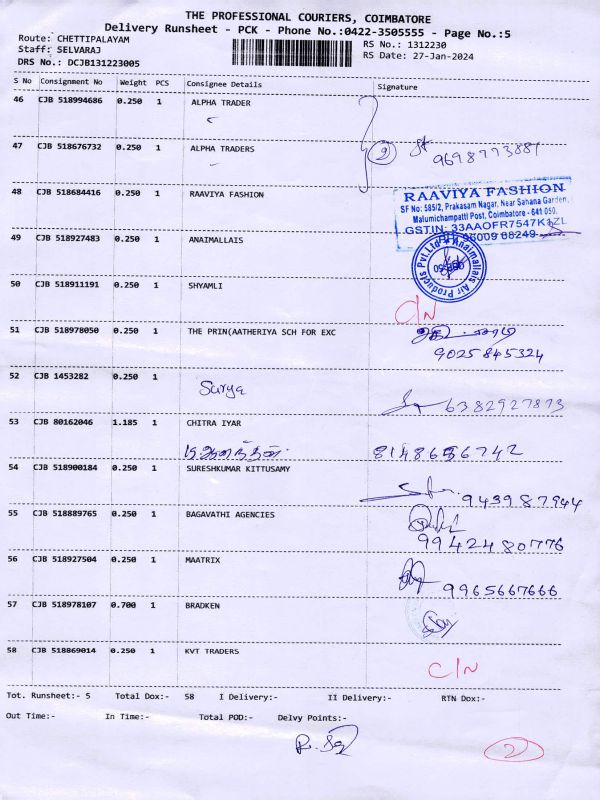 THE PROFESSIONAL COURIERS, COIMBATORE
Delivery Runsheet - PCK - Phone No.:0422-3505555 - Page No.:5
Route: CHETTIPALAYAM
Staff: SELVARAJ
RS No.: 1312230
RS Date: 27-Jan-2024
DRS No.: DCJB131223005
S No Consignment No Weight PCS Consignee Details Signature
46 CJB 518994686 0.250 1 ALPHA TRADER
47 CJB 518676732 0.250 1 ALPHA TRADERS
2 9698773881
48 CJB 518684416 0.250 1 RAAVIYA FASHION
RAAVIYA FASHION
SF No: 585/2, Prakasam Nagar, Near Sahana Garden,
Malumichampatti Post, Coimbatore - 641 050.
GSTIN: 33AAOFR7547K1ZL
49 CJB 518927483 0.250 1 ANAIMALLAIS
Anaimallais Air Products Pvt.Ltd
50 CJB 518911191 0.250 1 SHYAMLI
C/N
51 CJB 518978050 0.250 1 THE PRIN(AATHERIYA SCH FOR EXC
9025845324
52 CJB 1453282 0.250 1 Surya 6382927873
53 CJB 80162046 1.185 1 CHITRA IYAR
54 CJB 518900184 0.250 1 SURESHKUMAR KITTUSAMY
9439987944
55 CJB 518889765 0.250 1 BAGAVATHI AGENCIES
9942480776
56 CJB 518927504 0.250 1 MAATRIX
9965667666
57 CJB 518978107 0.700 1 BRADKEN
58 CJB 518869014 0.250 1 KVT TRADERS
C/N
Tot. Runsheet:- 5 Total Dox:- 58 I Delivery:- II Delivery:- RTN Dox:-
Out Time:- In Time:- Total POD:- Delvy Points:-
2